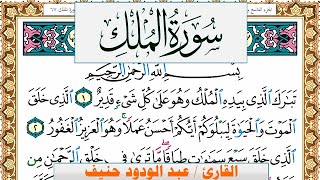 سورة الملك
بِسْمِ اللَّهِ الرَّحْمَٰنِ الرَّحِيمِ
تَبَارَكَ الَّذِي بِيَدِهِ الْمُلْكُ وَهُوَ عَلَىٰ كُلِّ شَيْءٍ قَدِيرٌ ١ الَّذِي خَلَقَ
الْمَوْتَ وَالْحَيَاةَ لِيَبْلُوَكُمْ أَيُّكُمْ أَحْسَنُ عَمَلًا وَهُوَ الْعَزِيزُ الْغَفُورُ ٢
الَّذِي خَلَقَ سَبْعَ سَمَاوَاتٍ طِبَاقًا مَا تَرَىٰ فِي خَلْقِ الرَّحْمَٰنِ مِن
القارئ / عبد الودود حنيف